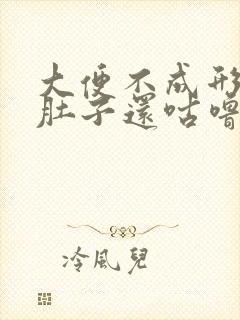 大便不成形
肚子還咕嚕
冷風兒